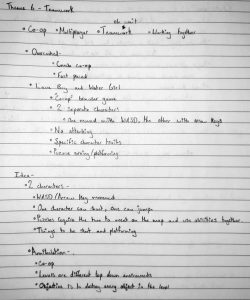 Theme 6 - Teamwork
oh wait
• Co-op • Multiplayer • Teamwork • Working together
• Overcooked -
• Couch co-op
• Fast paced
• Lava Boy and Water Girl
• Co-op browser game
• 2 separate characters
• One moved with WASD, the other with arrow keys
• No attacking
• Specific character traits
• Puzzle solving/platforming
Idea -
• 2 characters -
• WASD/Arrow Key movement
• One character can shoot, one can jump
• Puzzles require the two to meet on the map and use abilities together.
• Things to be shot and platforming
• Annihilation -
• Co-op
• Levels are different top down environments
• Objective is to destroy every object in the level